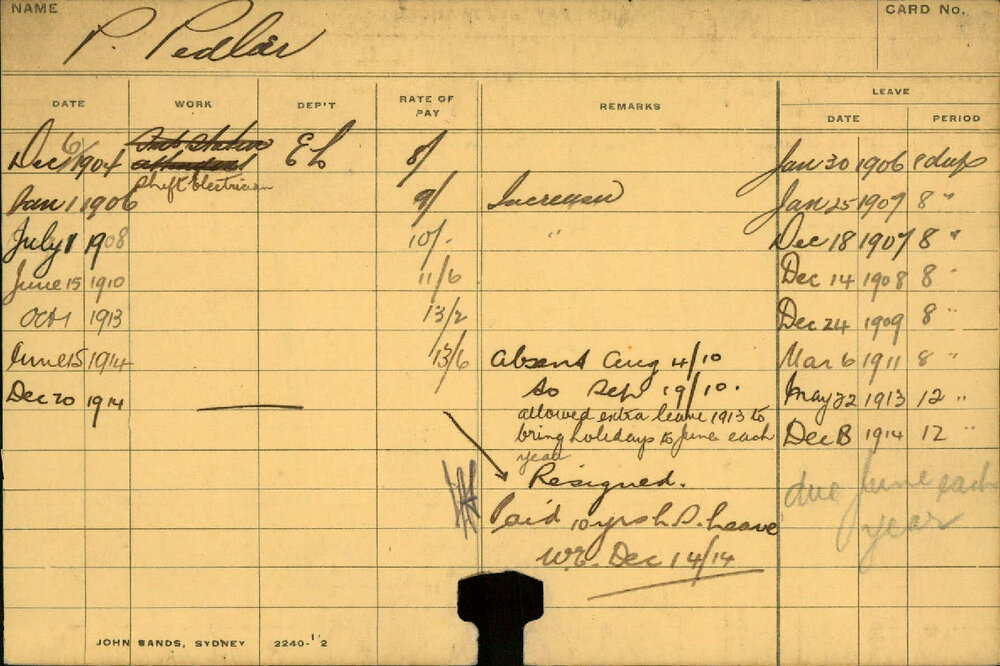 NAME
P. Pedlar
CARD No.
DATE WORK DEP'T RATE OF PAY REMARKS LEAVE
DATE PERIOD
Dec 6/1904 Sub Station E L 8/ Jan 30 1906 8 days
attendant
Shift Electrician
Jan 1 1906 9/ Increase Jan 25 1907 8 "
July 1 1908 10/- " Dec 18 1907 8 "
June 15 1910 11/6 Dec 14 1908 8 "
Oct 1 1913 13/2 Dec 24 1909 8 "
June 15 1914 13/6 Absent Aug 4/10 Mar 6 1911 8 "
Dec 20 1914 to Sep 19/10. May 22 1913 12 "
allowed extra leave 1913 to
bring holidays to June each Dec 8 1914 12 "
year
Resigned. due June each
Paid 10 yrs L.S. Leave year
W.E. Dec 14/14
JOHN SANDS, SYDNEY 2240-1'2